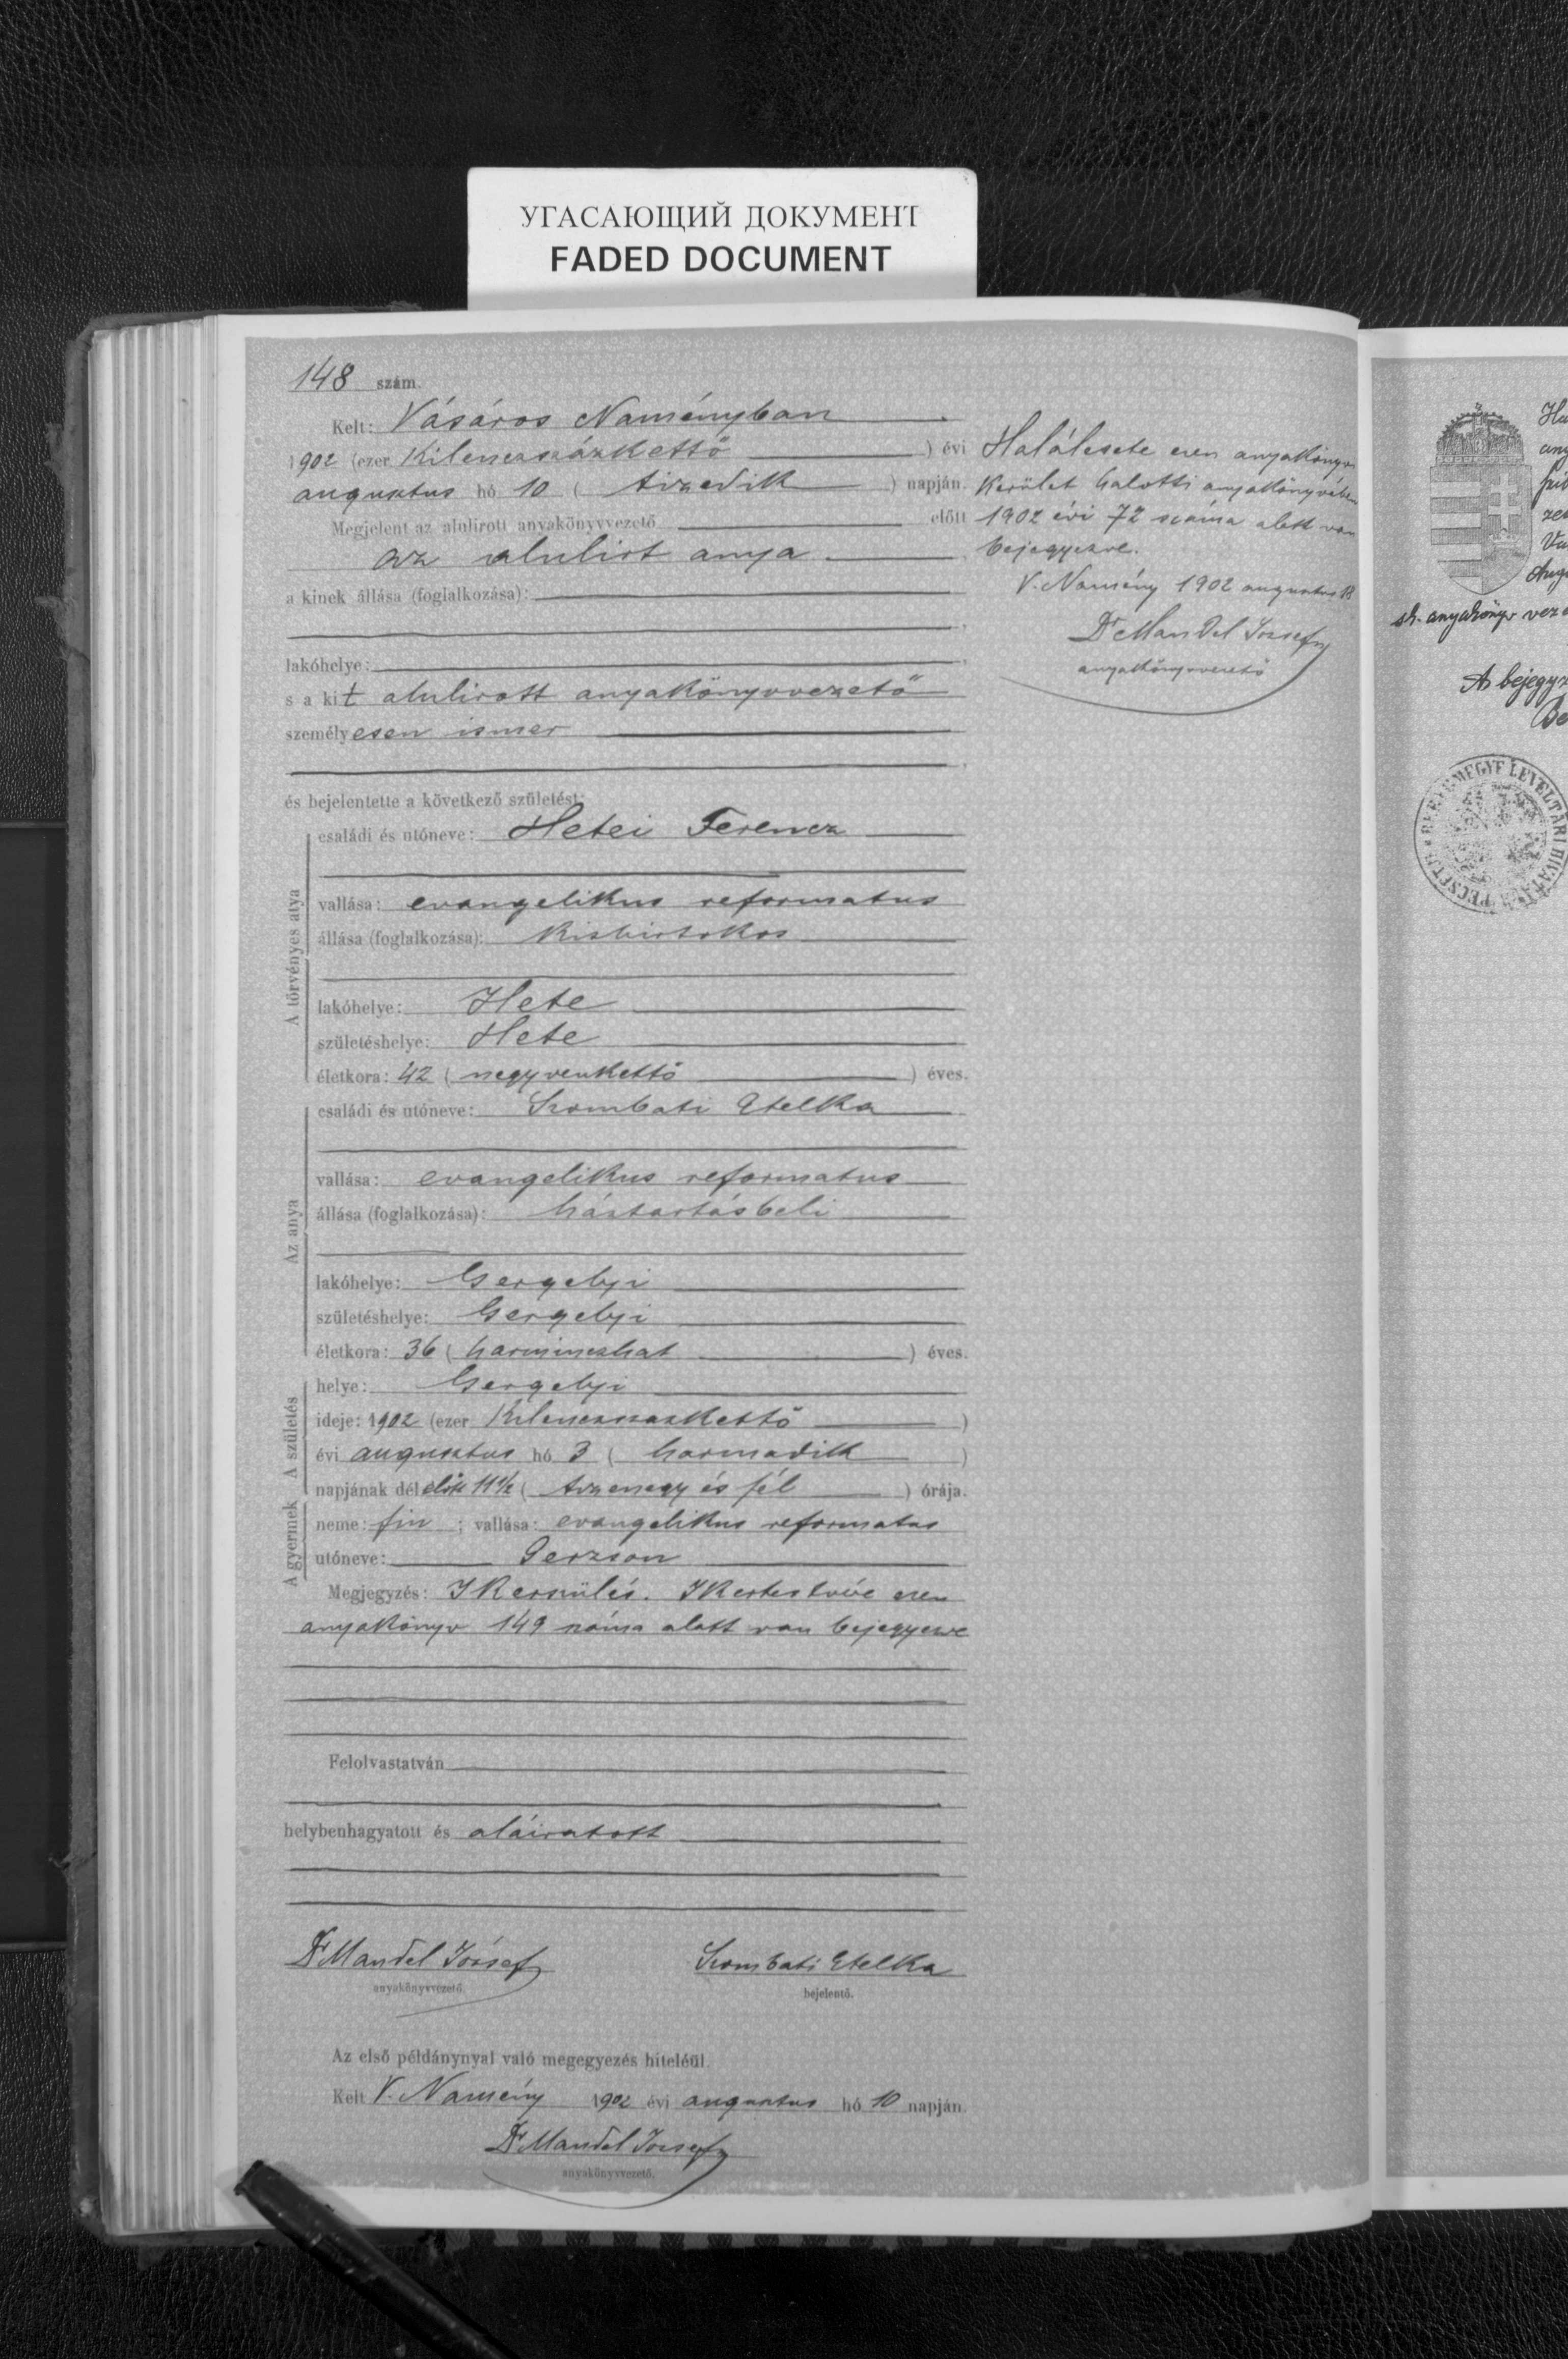 УГАСАЮЩИЙ ДОКУМЕНТ
FADED DOCUMENT
148 szám.
Kelt: Vásáros Naményban
1902 (ezer kilenczszázkettő ) évi
augusztus hó 10 ( tizedik ) napján.
Megjelent az alulirott anyakönyvvezető előtt
az alulirt anya
a kinek állása (foglalkozása):
lakóhelye:
s a kit alulirott anyakönyvvezető
személyesen ismer
és bejelentette a következő születést:
A törvényes atya
családi és utóneve: Hetei Ferencz
vallása: evangelikus reformatus
állása (foglalkozása): kisbirtokos
lakóhelye: Hete
születéshelye: Hete
életkora: 42 ( negyvenkettő ) éves.
Az anya
családi és utóneve: Szombati Etelka
vallása: evangelikus reformatus
állása (foglalkozása): háztartásbeli
lakóhelye: Gergelyi
születéshelye: Gergelyi
életkora: 36 ( harminczhat ) éves.
A születés
helye: Gergelyi
ideje: 1902 (ezer kilenczszázkettő )
évi augusztus hó 3 ( harmadik )
napjának délelőtt 11½ ( tizenegy és fél ) órája.
A gyermek
neme: fiu ; vallása: evangelikus reformatus
utóneve: Gerzson
Megjegyzés: Ikerszülés. Ikertestvére ezen
anyakönyv 149 száma alatt van bejegyezve
Felolvastatván
helybenhagyatott és aláiratott
Dr Mandel József
anyakönyvvezető.
Szombati Etelka
bejelentő.
Az első példánynyal való megegyezés hiteléül.
Kelt V. Namény 1902 évi augusztus hó 10 napján.
Dr Mandel József
anyakönyvvezető.
Halálesete ezen anyakönyvi
kerület halotti anyakönyvében
1902 évi 72 száma alatt van
bejegyezve.
V. Namény 1902 augusztus
Dr Mandel József
anyakönyvvezető
sk. anyakönyv
A bejegyz